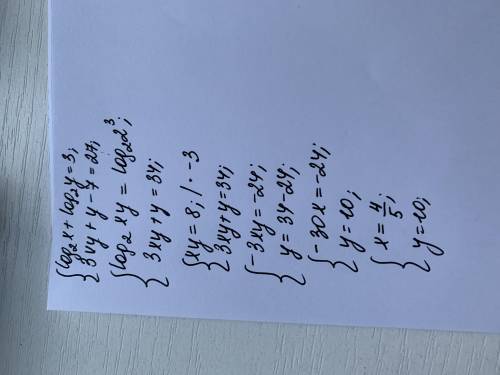 log₂x + log₂y = 3;
3xy + y - 7 = 27;
log₂ xy = log₂2³;
3xy + y = 34;
xy = 8; / · -3
3xy + y = 34;
-3xy = -24;
y = 34 - 24;
-30x = -24;
y = 10;
x = 4/5;
y = 10;